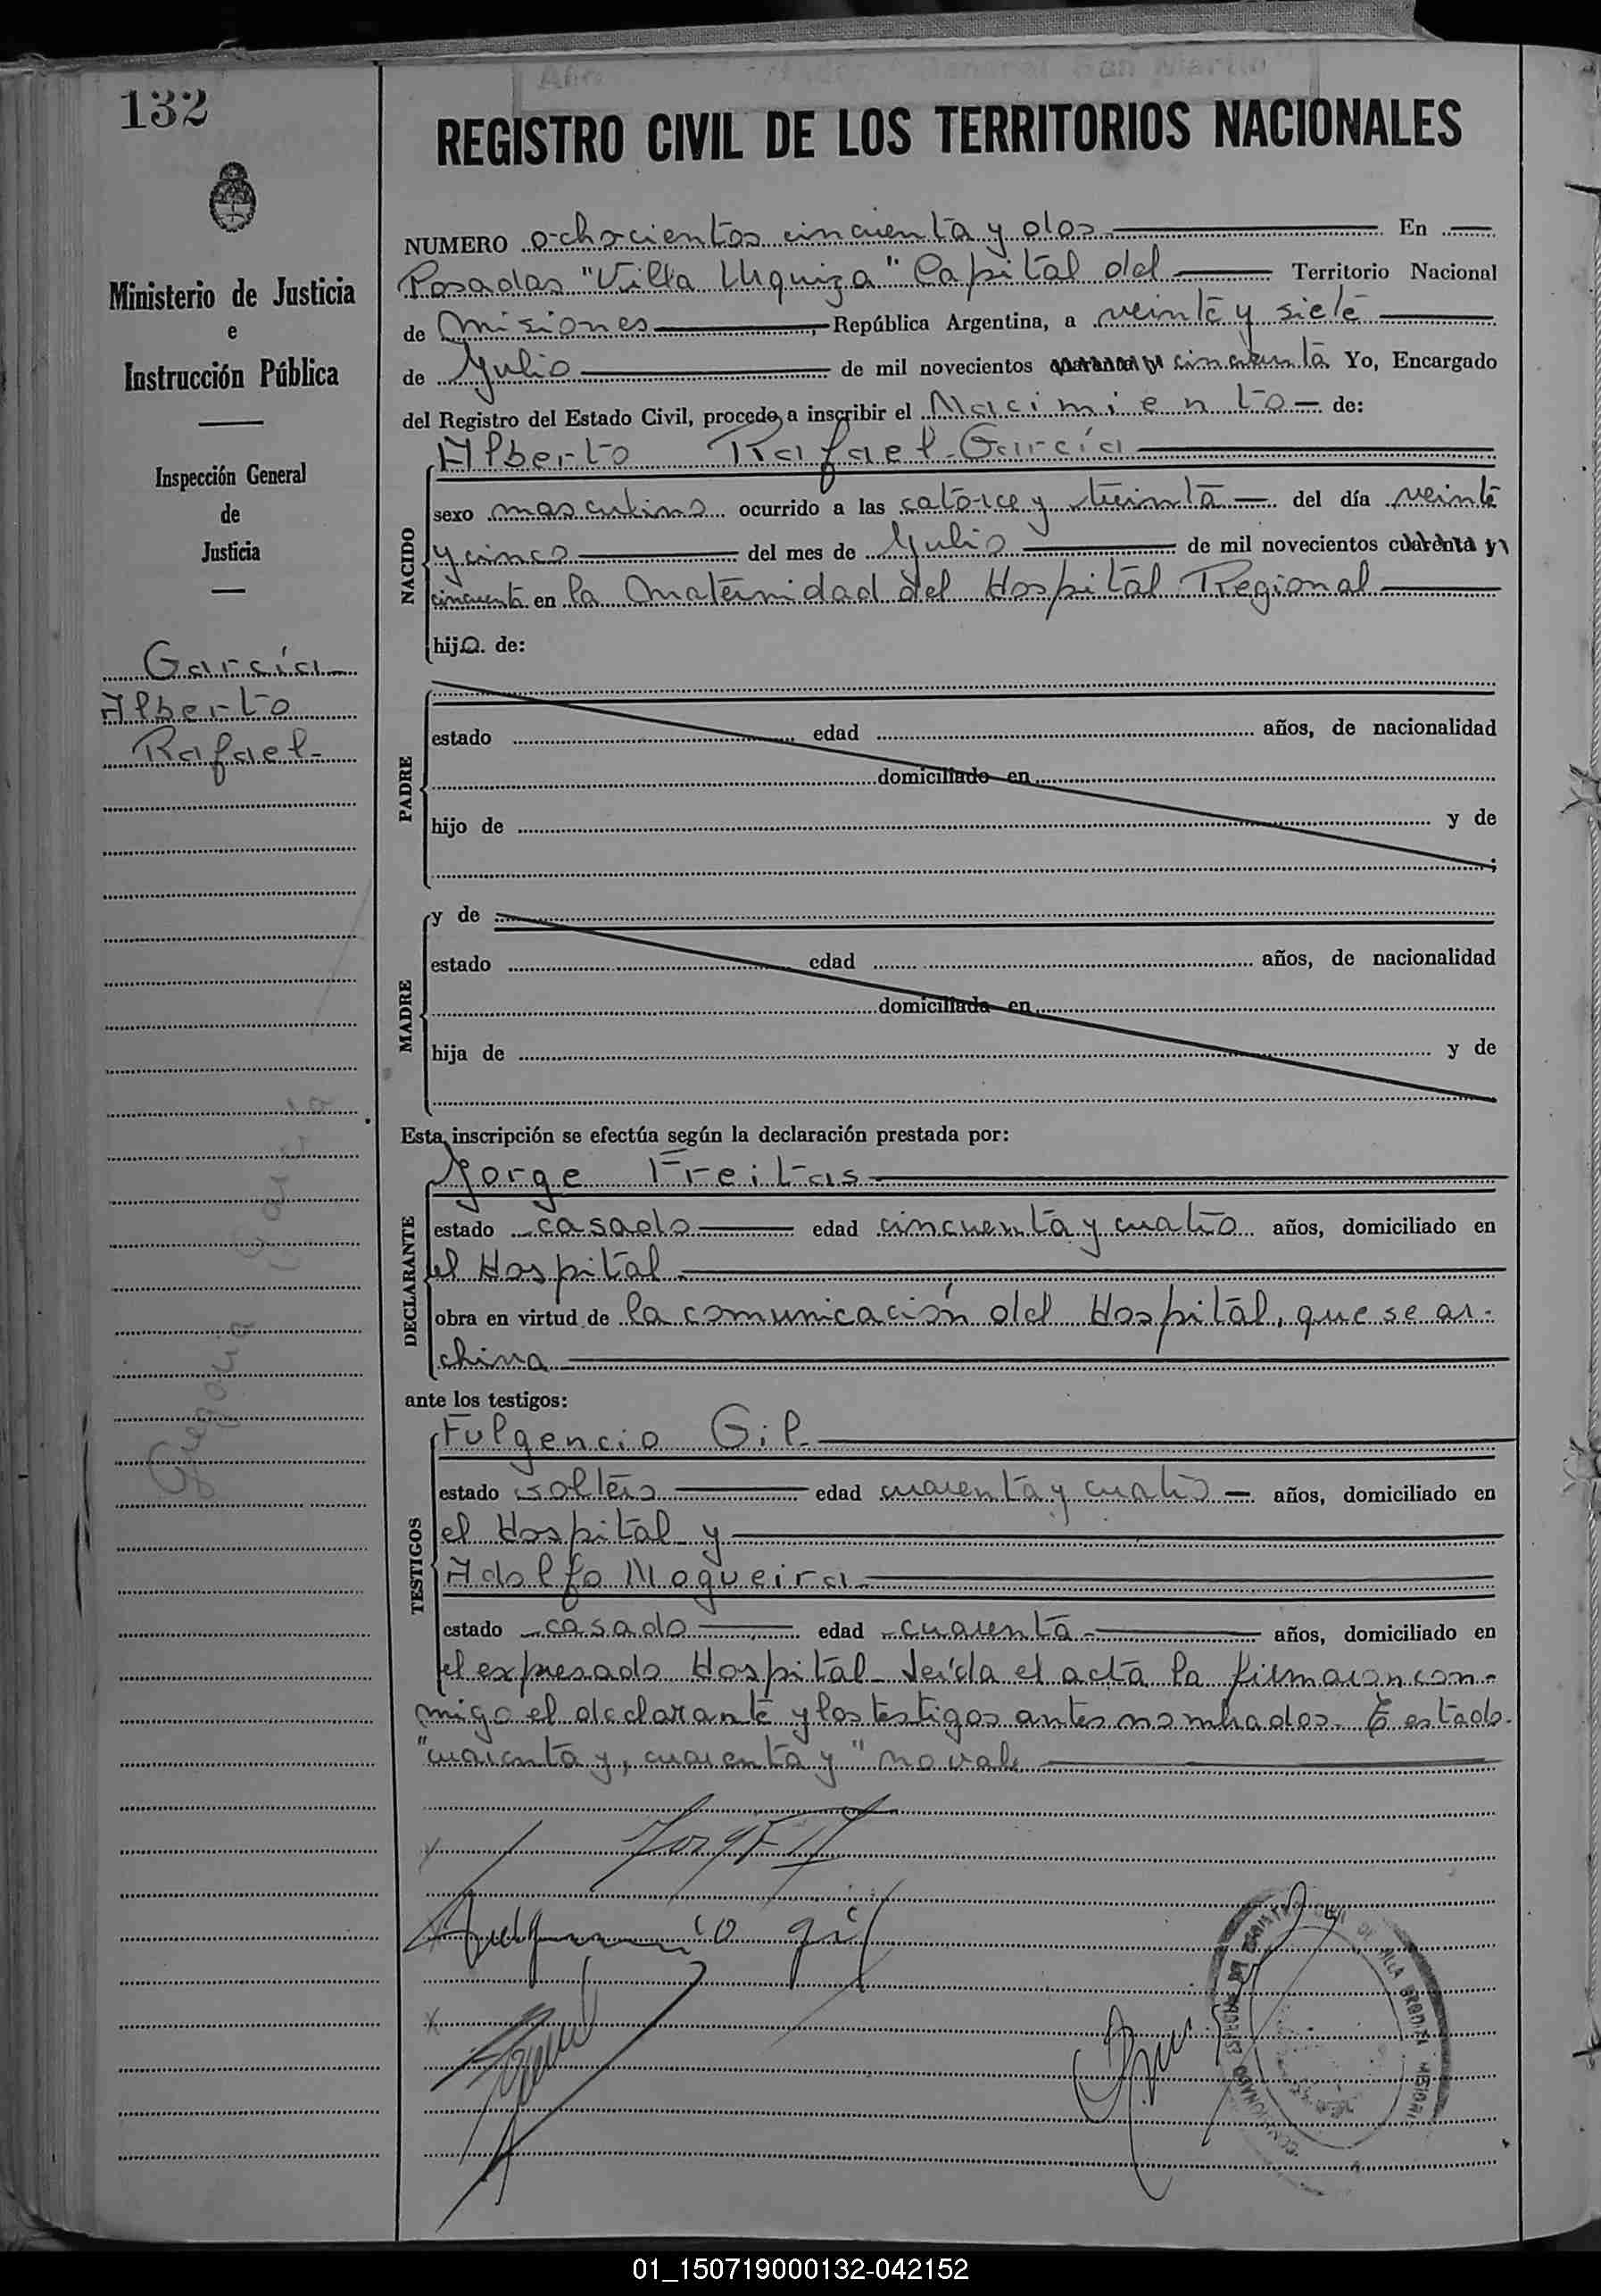 132
REGISTRO CIVIL DE LOS TERRITORIOS NACIONALES
Ministerio de Justicia
e
Instrucción Pública
Inspección General
de
Justicia
García
Alberto
Rafael
NUMERO ochocientos cincuenta y dos En
Posadas "Villa Urquiza" Capital del Territorio Nacional
de Misiones, República Argentina, a veinte y siete
de Julio de mil novecientos cuarenta y cincuenta Yo, Encargado
del Registro del Estado Civil, procedo a inscribir el Nacimiento de:
Alberto Rafael García
NACIDO
sexo masculino ocurrido a las catorce y treinta del día veinte
y cinco del mes de Julio de mil novecientos cuarenta y
cincuenta en la Maternidad del Hospital Regional
hijo de:
PADRE
estado edad años, de nacionalidad
domiciliado en
hijo de y de
MADRE
y de
estado edad años, de nacionalidad
domiciliada en
hija de y de
Esta inscripción se efectúa según la declaración prestada por:
DECLARANTE
Jorge Freitas
estado casado edad cincuenta y cuatro años, domiciliado en
el Hospital
obra en virtud de la comunicación del Hospital, que se ar-
chiva
ante los testigos:
TESTIGOS
Fulgencio Gil
estado soltero edad cuarenta y cuatro años, domiciliado en
el Hospital y
Adolfo Nogueira
estado casado edad cuarenta años, domiciliado en
el expresado Hospital. Leída el acta la firmaron con-
migo el declarante y los testigos antes nombrados. E estado
"cuarenta y, cuarenta y" no vale
Fulgencio gil
01_150719000132-042152